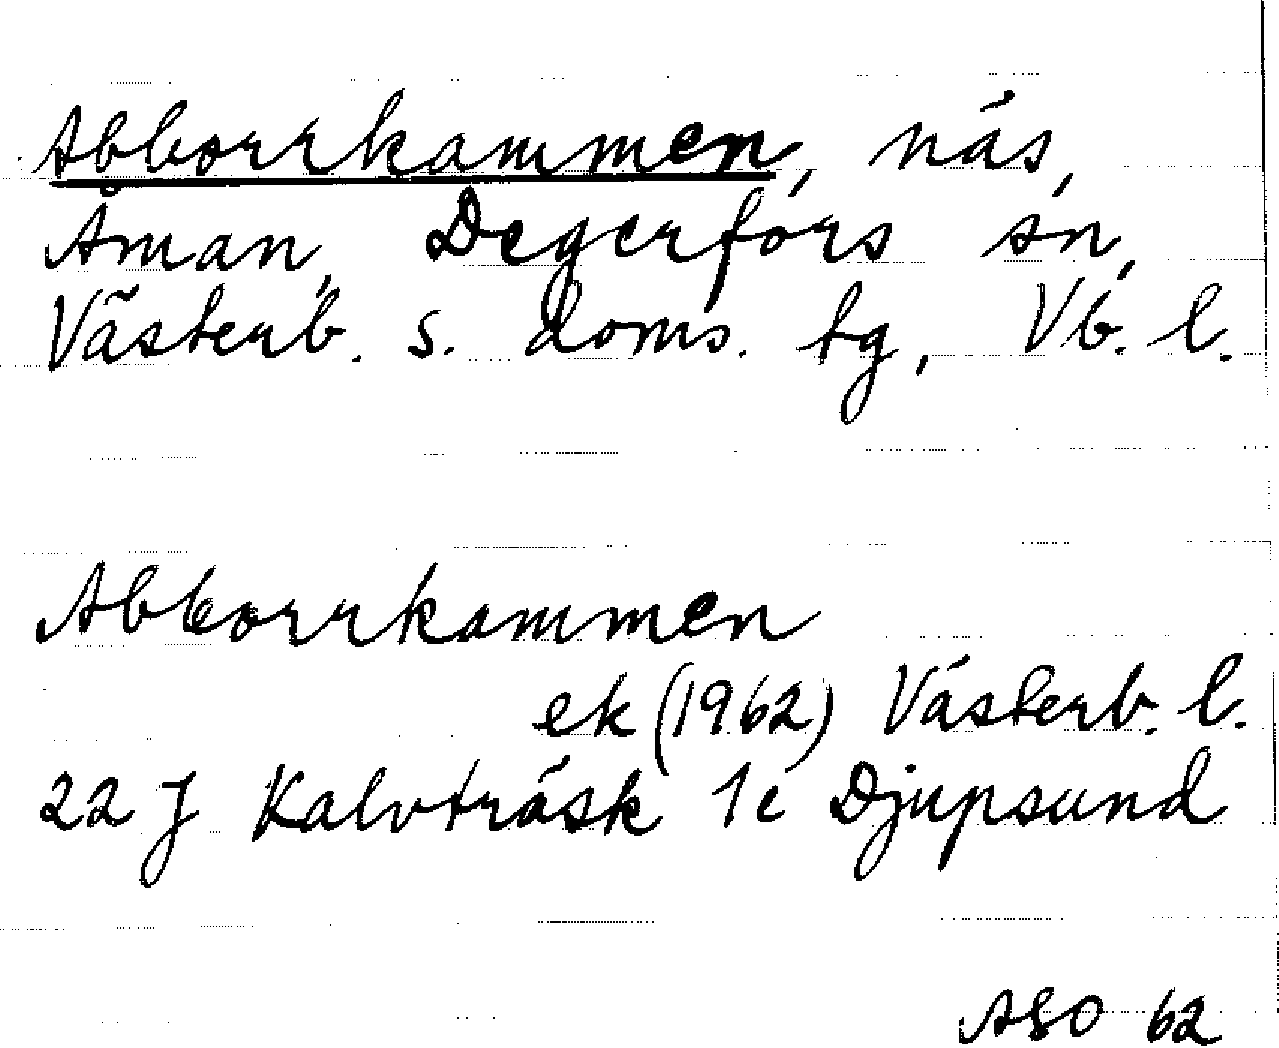 Abborrkammen, näs,
Åman, Degerfors sn,
Västerb. s. doms. tg, Vb. l.
Abborrkammen
ek (1962) Västerb. l.
22 J Kalvträsk 1 c Djupsund
ASO 62